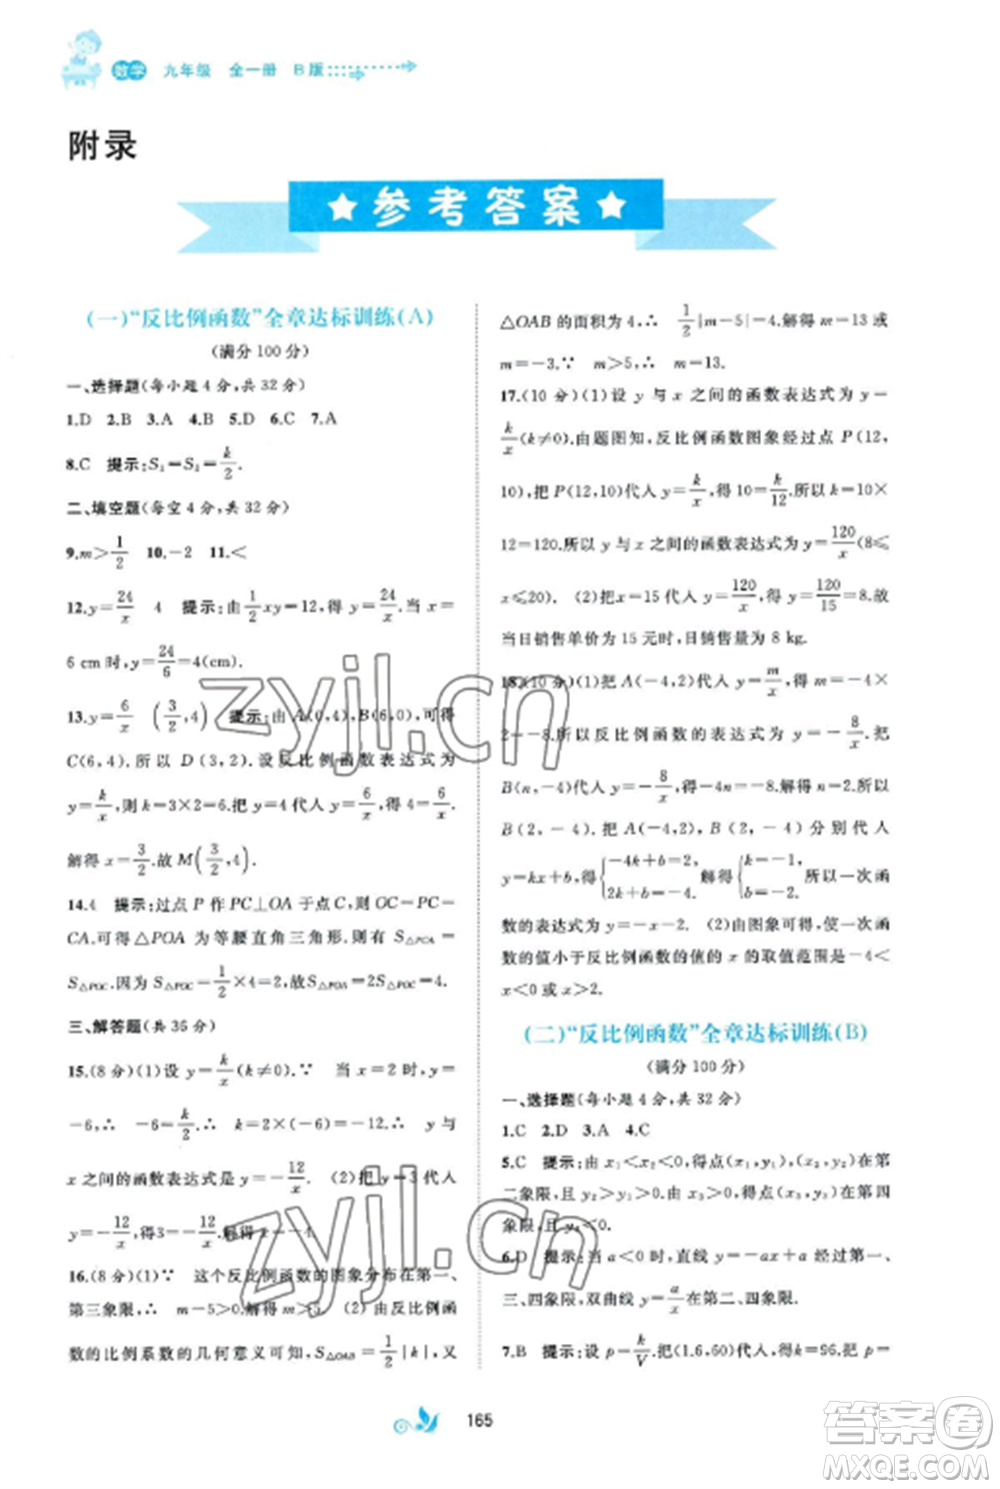 数学 九年级 全一册 B版
附录
参考答案
(一)“反比例函数”全章达标训练(A)
(满分100分)
一、选择题(每小题4分,共32分)
1.D 2.B 3.A 4.B 5.D 6.C 7.A
8.C 提示:S₁=S₂=k/2.
二、填空题(每空4分,共32分)
9.m>1/2 10.-2 11.<
12.y=24/x 4 提示:由1/2xy=12,得y=24/x.当x=
6 cm时,y=24/6=4(cm).
13.y=6/x (3/2,4) 提示:由A(0,4),B(6,0),可得
C(6,4).所以D(3,2).设反比例函数表达式为
y=k/x,则k=3×2=6.把y=4代入y=6/x,得4=6/x.
解得x=3/2.故M(3/2,4).
14.4 提示:过点P作PC⊥OA于点C,则OC=PC=
CA.可得△POA为等腰直角三角形.则有S△PCA=
S△POC=1/2×4=2.所以S△POA=2S△POC=4.
三、解答题(共36分)
15.(8分)(1)设y=k/x(k≠0).∵ 当x=2时,y=
-6,∴ -6=k/2.∴ k=2×(-6)=-12.∴ y与
x之间的函数表达式是y=-12/x. (2)把y=3代入
y=-12/x,得3=-12/x.解得x=-4.
16.(8分)(1)∵ 这个反比例函数的图象分布在第一、
第三象限,∴ m-5>0.解得m>5. (2)由反比例函
数的比例系数的几何意义可知,S△OAB=1/2|k|,又
△OAB的面积为4,∴ 1/2|m-5|=4.解得m=13或
m=-3.∵ m>5,∴ m=13.
17.(10分)(1)设y与x之间的函数表达式为y=
k/x(k≠0).由题图知,反比例函数图象经过点P(12,
10),把P(12,10)代入y=k/x,得10=k/12.所以k=10×
12=120.所以y与x之间的函数表达式为y=120/x(8≤
x≤20). (2)把x=15代入y=120/x,得y=120/15=8.故
当日销售单价为15元时,日销售量为8 kg.
18.(10分)(1)把A(-4,2)代入y=m/x,得m=-4×
2=-8.所以反比例函数的表达式为y=-8/x.把
B(n,-4)代入y=-8/x,得-4n=-8.解得n=2.所以
B(2,-4).把A(-4,2),B(2,-4)分别代入
y=kx+b,得{-4k+b=2, 2k+b=-4. 解得{k=-1, b=-2. 所以一次函
数的表达式为y=-x-2. (2)由图象可得,使一次函
数的值小于反比例函数的值的x的取值范围是-4<
x<0或x>2.
(二)“反比例函数”全章达标训练(B)
(满分100分)
一、选择题(每小题4分,共32分)
1.C 2.D 3.A 4.C
5.C 提示:由x₁<x₂<0,得点(x₁,y₁),(x₂,y₂)在第
二象限,且y₂>y₁>0.由x₃>0,得点(x₃,y₃)在第四
象限,且y₃<0.
6.D 提示:当a<0时,直线y=-ax+a经过第一、
三、四象限,双曲线y=a/x在第二、四象限.
7.B 提示:设p=k/V.把(1.6,60)代入,得k=96.把p=
165
zyjl.cn
zyjl.cn
答案圈
MXQE.COM